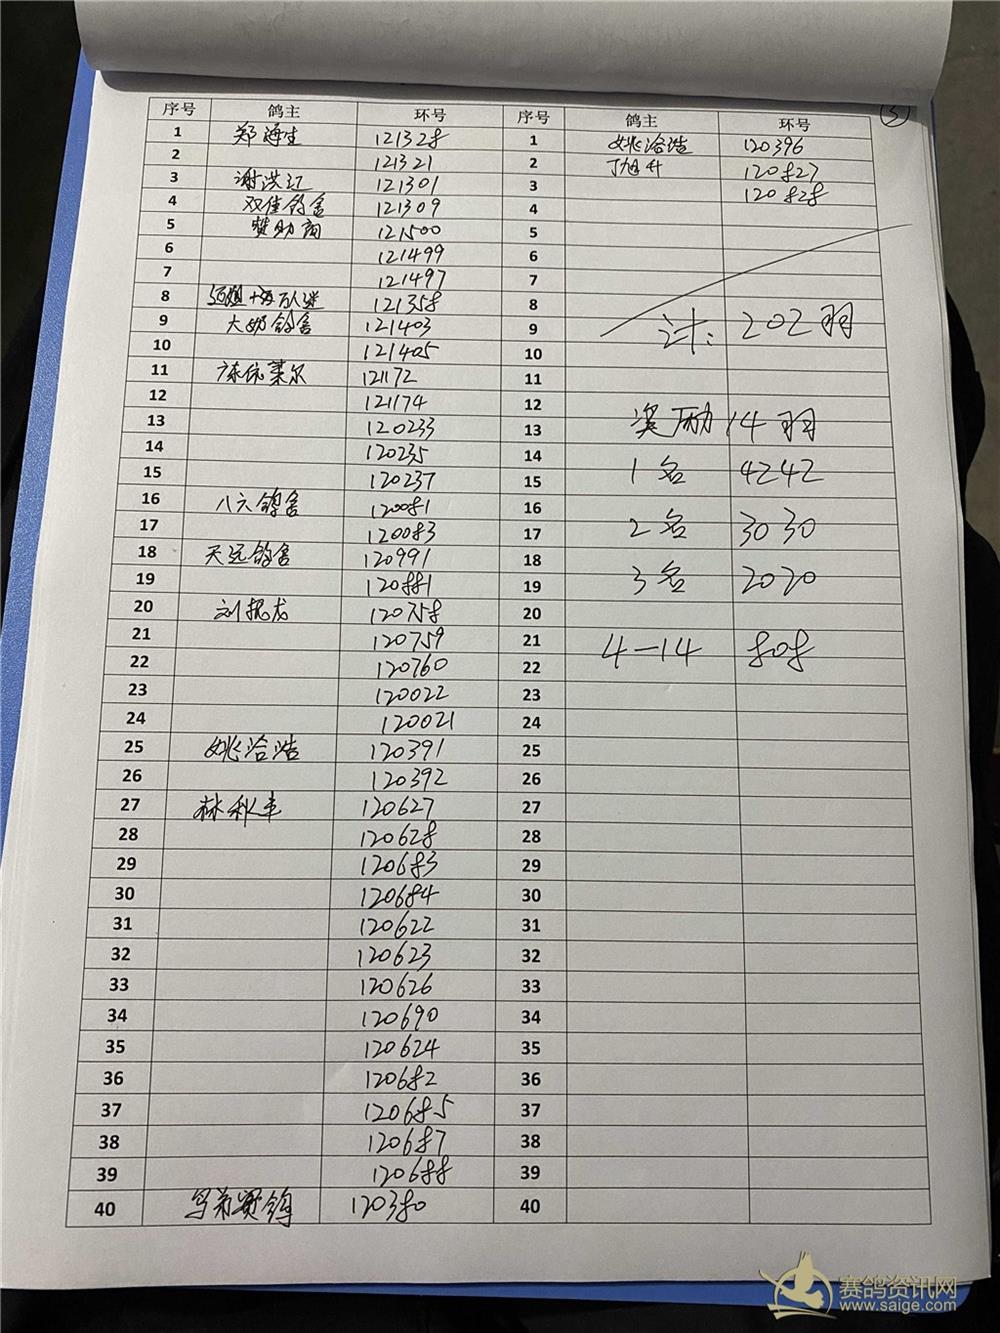 5
序号 鸽主 环号
1 郑海生 121328
2 121321
3 谢洪江 121301
4 双佳鸽舍 121309
5 赞助商 121500
6 121499
7 121497
8 121358
9 鸽舍 121403
10 121405
11 莱尔 121172
12 121174
13 120233
14 120235
15 120237
16 八六鸽舍 120081
17 120083
18 天远鸽舍 120991
19 120881
20 刘振龙 120758
21 120759
22 120760
23 120022
24 120021
25 姚洽浩 120391
26 120392
27 林秋丰 120627
28 120628
29 120683
30 120684
31 120622
32 120623
33 120626
34 120690
35 120624
36 120682
37 120685
38 120687
39 120688
40 120380
序号 鸽主 环号
1 姚洽浩 120396
2 丁旭升 120827
3 120828
4
5
6
7
8
9 计: 202羽
10
11
12
13 奖励 14羽
14
15 1名 4242
16
17 2名 3030
18
19 3名 2020
20
21 4-14 808
22
23
24
25
26
27
28
29
30
31
32
33
34
35
36
37
38
39
40
赛鸽资讯网
www.saige.com